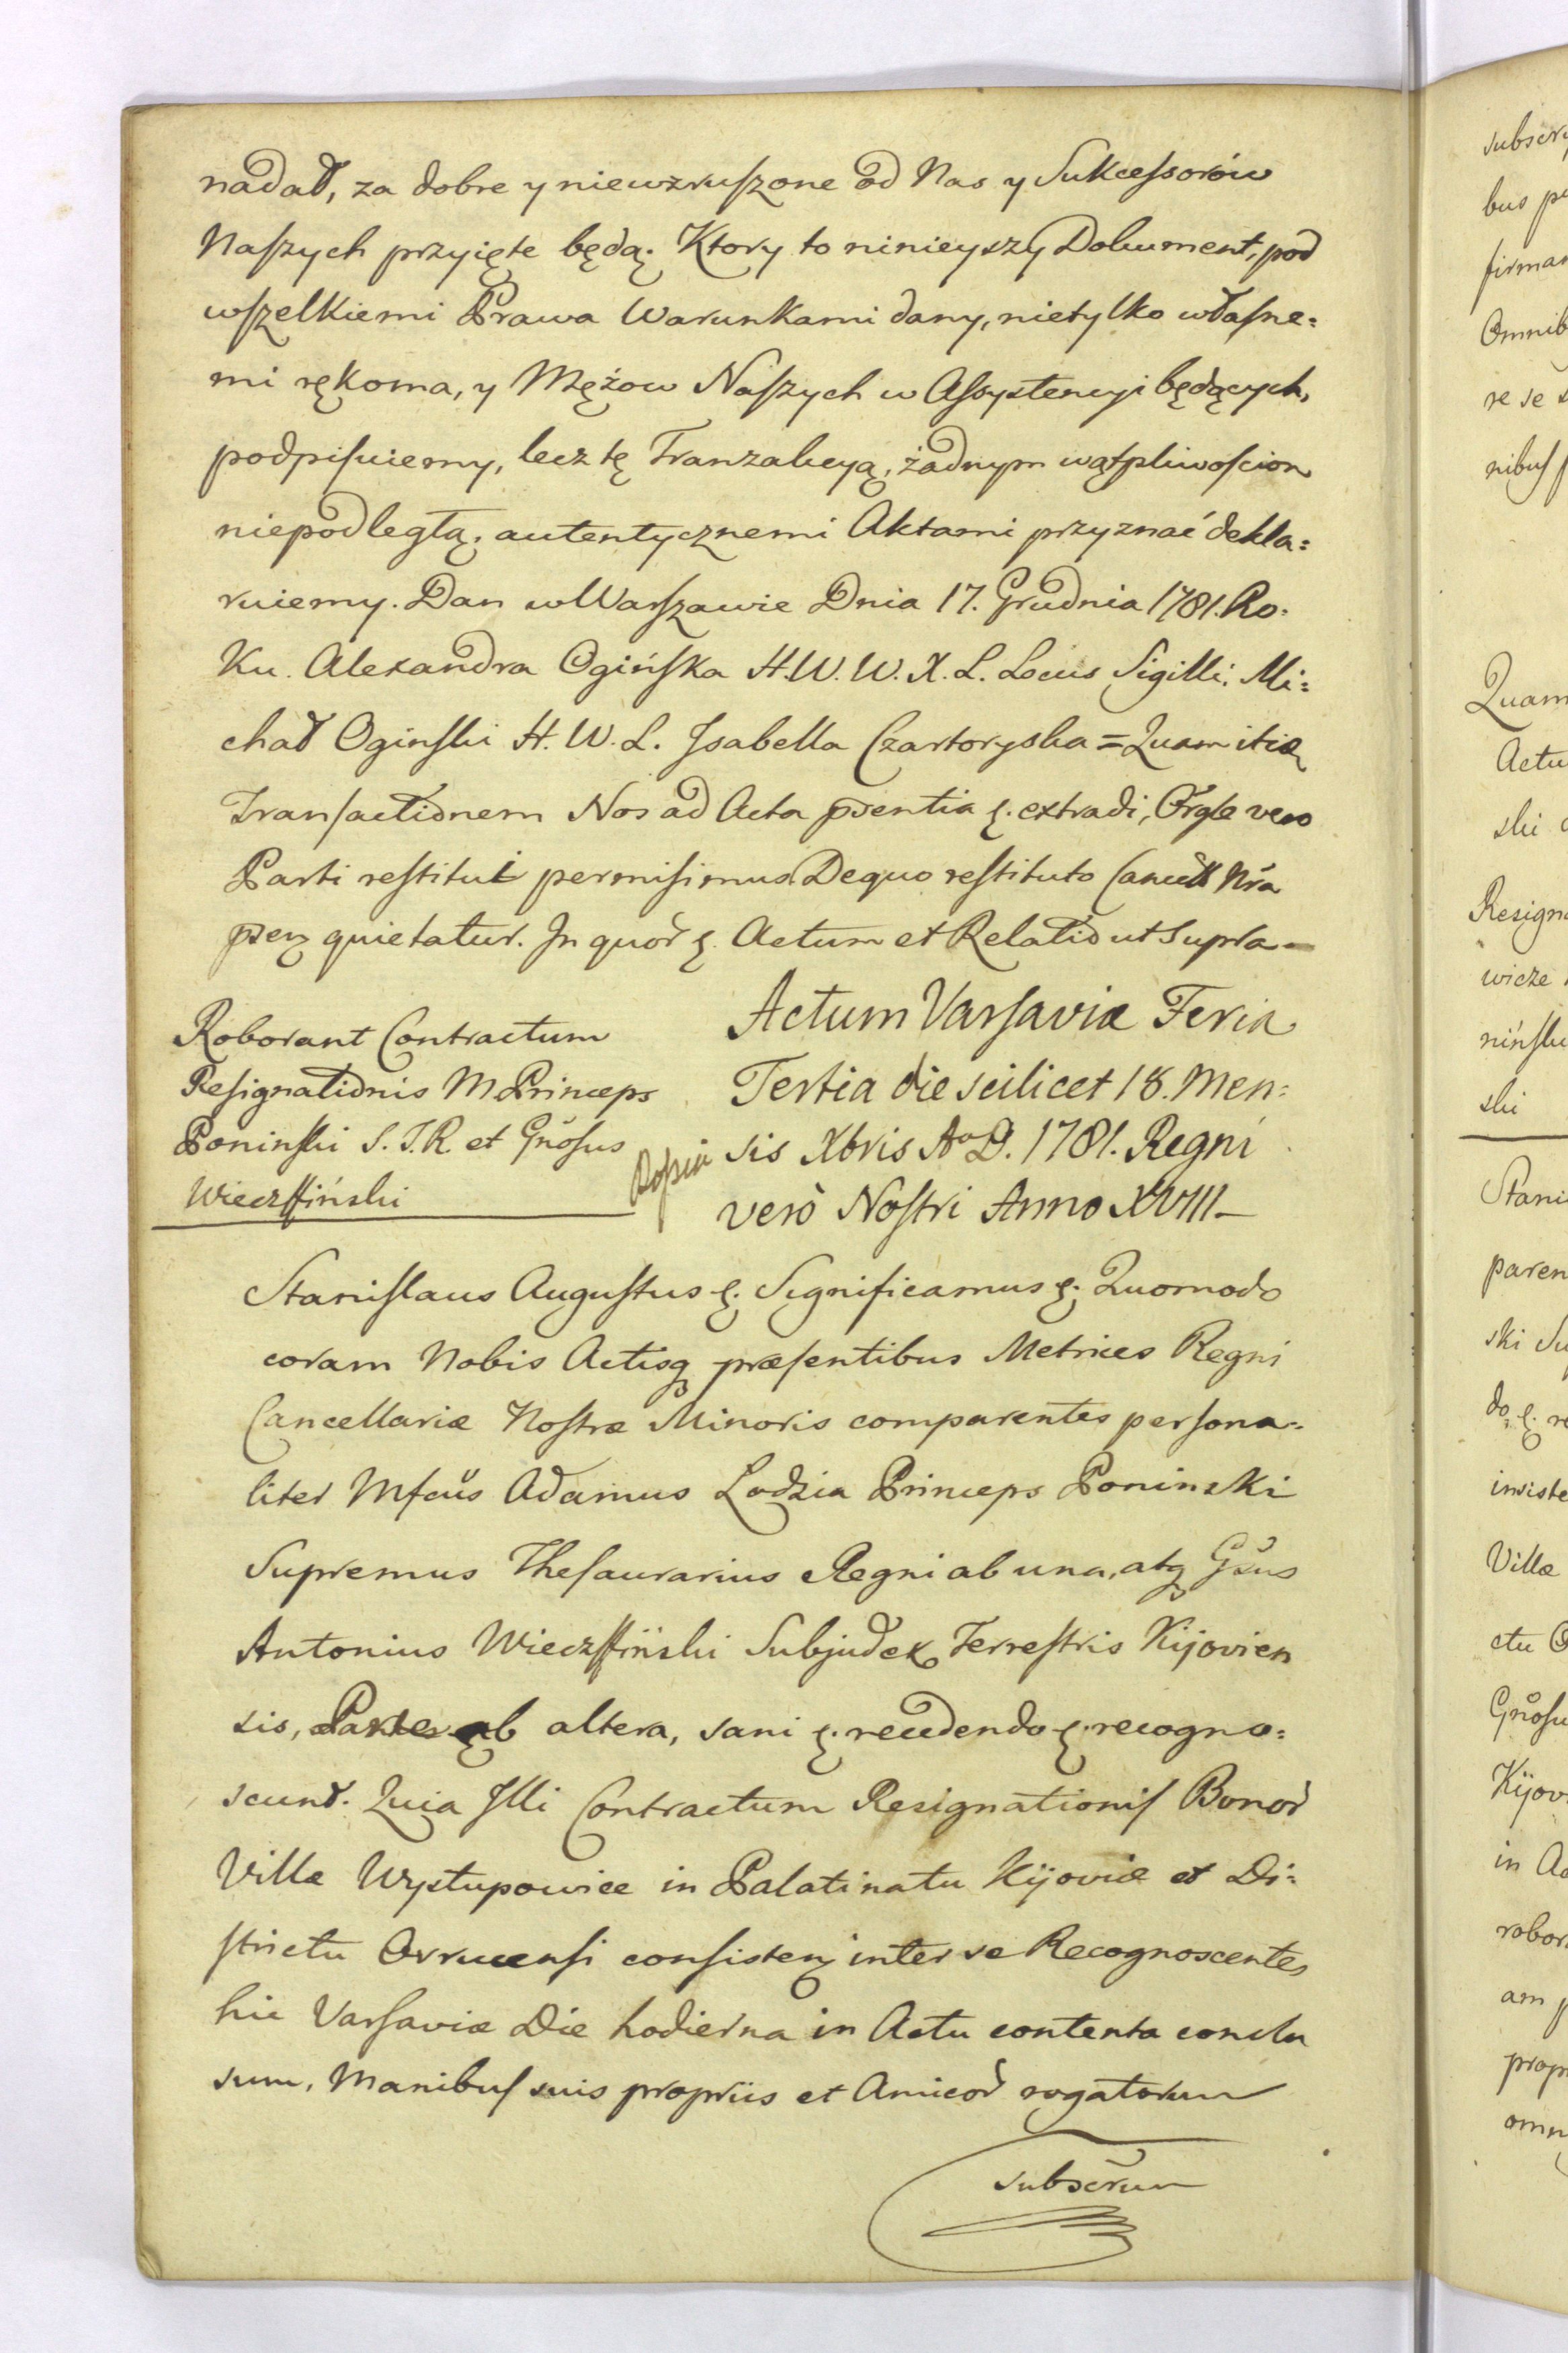 nadał, za dobre y niewzruszone od Nas y Sukcessorów
Naszych przyięte będą. Ktory to ninieyszy Dokument, pod
wszelkiemi Prawa Warunkami dany, nietylko własne=
mi rękoma, y Mężow Naszych w Assystencyi będących,
podpisuiemy, lecz tę Tranzakcyą, żadnym wątpliwościom
niepodległą, autentycznemi Aktami przyznać dekla=
ruiemy. Dan w Warszawie Dnia 17. Grudnia 1781. Ro=
Ku. Alexandra Ogińska H. W. W. X. L. Locus Sigilli. Mi=
chał Oginski H. W. L. Isabella Czartoryska = Quam itiꝫ
Transactionem Nos ad Acta pñtia ꝛ. extradi, Orgle vero
Parti restitui permisimus. De quo restituto Cancell Nra
per quietatur. In quor̃ ꝛ. Actum et Relatio ut supra –
Roborant Contractum
Resignationis M. Princeps
Poninski S. T. R. et Gnosus
Wieczffiński
Actum Varsaviæ Feria
Tertia die scilicet 18. Men=
sis Xbris Aº D. 1781. Regni
verò Nostri Anno XVIII –
Stanislaus Augustus ꝛ. Significamus ꝛ. Quomodo
coram Nobis Actisq præsentibus Metrices Regni
Cancellariæ Nostræ Minoris comparentes persona=
liter Mfcus Adamus Lodzia Princeps Poninski
Supremus Thesaurarius Regni ab una, atq Gsus
Antonius Wieczffiński Subjudex Terrestris Kijovien
sis, Parte ab altera, sani ꝛ. recedendo ꝛ. recogno=
scunt. Quia Illi Contractum Resignationis Bonor̃
Villæ Wystupowice in Palatinatu Kijoviæ et Di=
strictu Ovrucensi consisten inter se Recognoscentes
hic Varsaviæ Die hodierna in Actu contenta conclu
sum, Manibus suis propriis et Amicor̃ rogatorum
subscrum